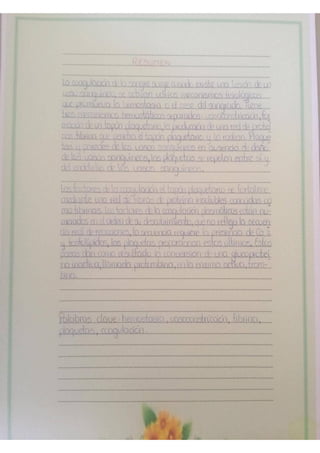 RESUMEN
La coagulación de la sangre surge cuando existe una lesión de un
vaso sanguíneo, se activan varios mecanismos fisiológicos
que promueve la hemostasia o el cese del sangrado. Tiene
tres mecanismos hemostáticos separados: vasoconstricción, for
mación de un tapón plaquetario, la producción de una red de proteí
nas fibrina que penetra el tapón plaquetario y lo rodean. Plaque
tas y paredes de los vasos sanguíneos en ausencia de daño
de los vasos sanguíneos, las plaquetas se repelen entre sí y
del endotelio de los vasos sanguíneos.
Los factores de la coagulación el tapón plaquetario se fortalece
mediante una red de fibras de proteína insolubles conocidas co
mo fibrinas. Los factores de la coagulación plasmáticos están nu
merados en el orden de su descubrimiento, que no refleja la secuen
cia real de reacciones, la secuencia requiere la presencia de Ca
y fosfolípidos, las plaquetas proporcionan estos últimos. Estos
pasos dan como resultado la conversión de una glucoproteí
na inactiva, llamada protrombina, en la enzima activa, trom-
bina.
Palabras clave: hemostasia, vasoconstricción, fibrina,
plaquetas, coagulación.